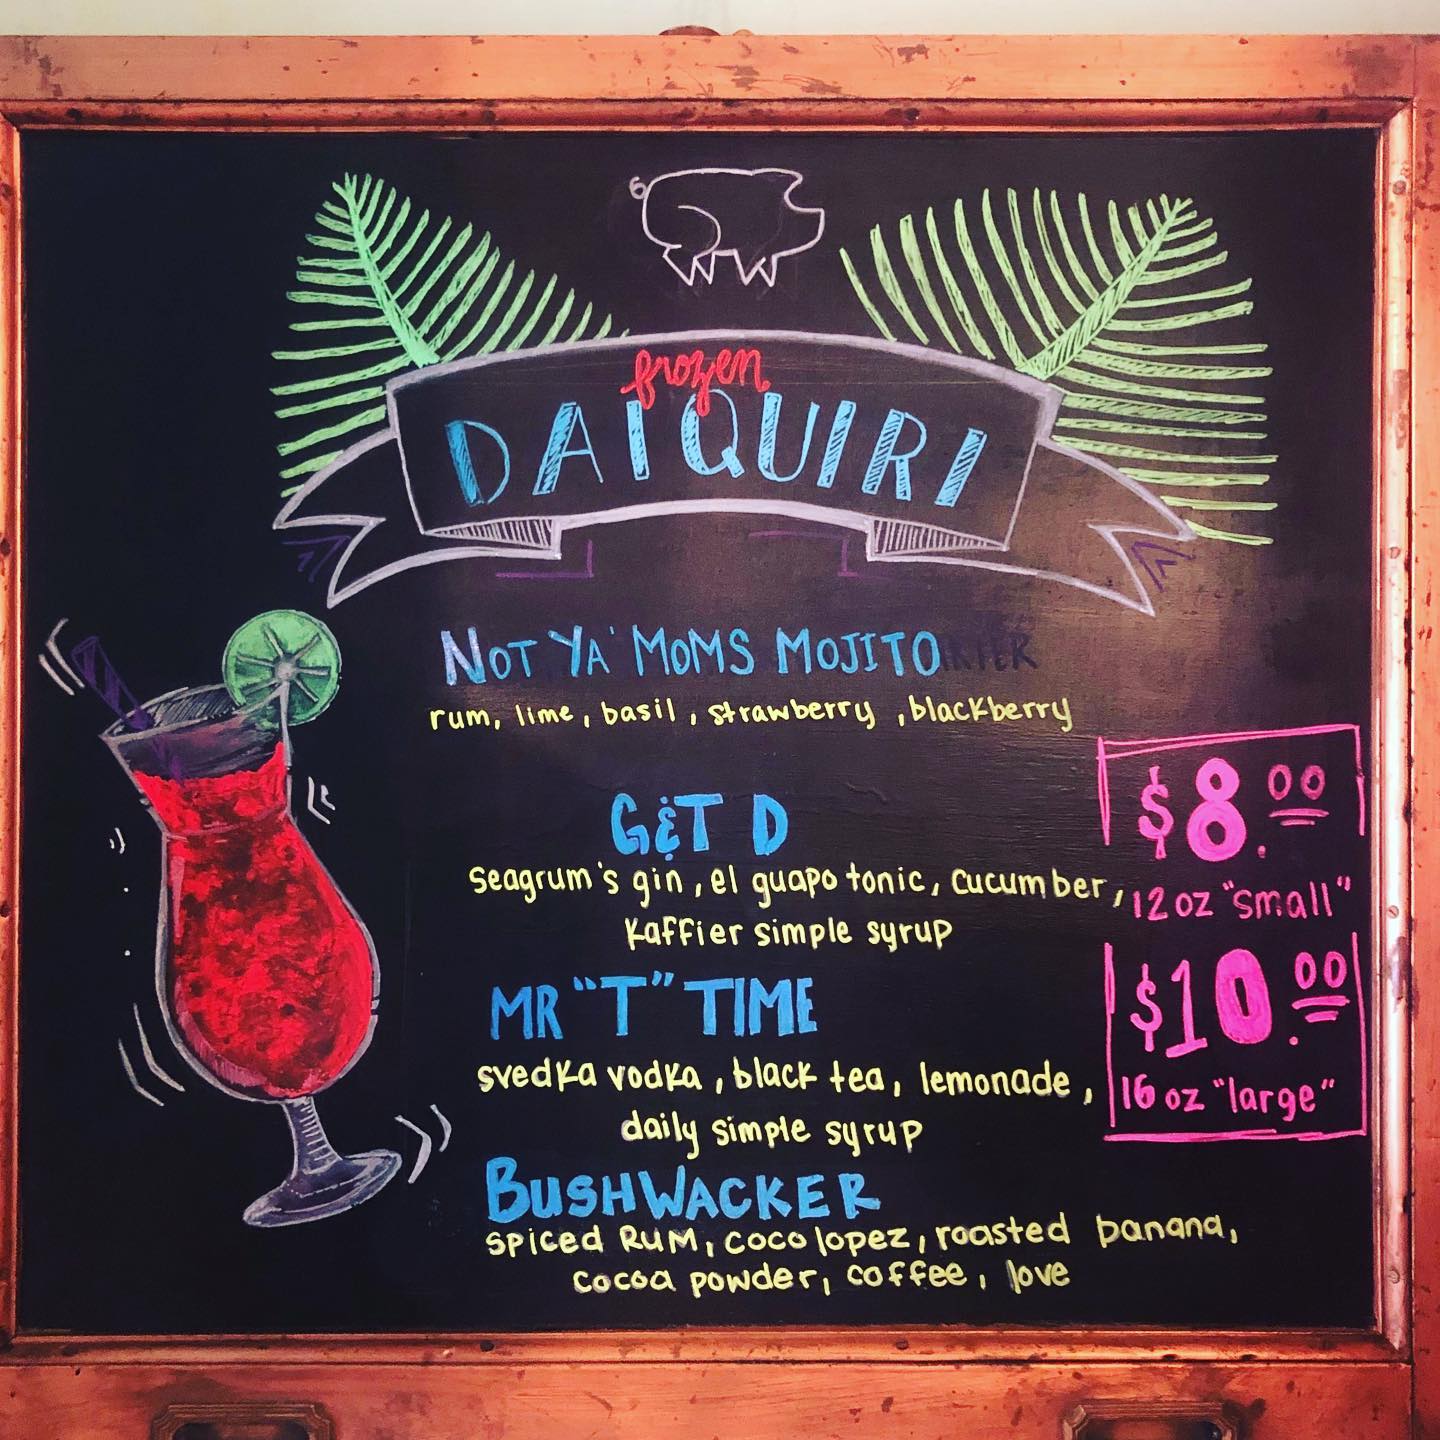 frozen
DAIQUIRI
NOT YA' MOMS MOJITO
rum, lime, basil, strawberry, blackberry
G&T D
seagrum's gin, el guapo tonic, cucumber,
kaffier simple syrup
MR "T" TIME
svedka vodka, black tea, lemonade,
daily simple syrup
BUSHWACKER
spiced RUM, coco lopez, roasted banana,
cocoa powder, coffee, love
$8.00
12 oz "small"
$10.00
16 oz "large"